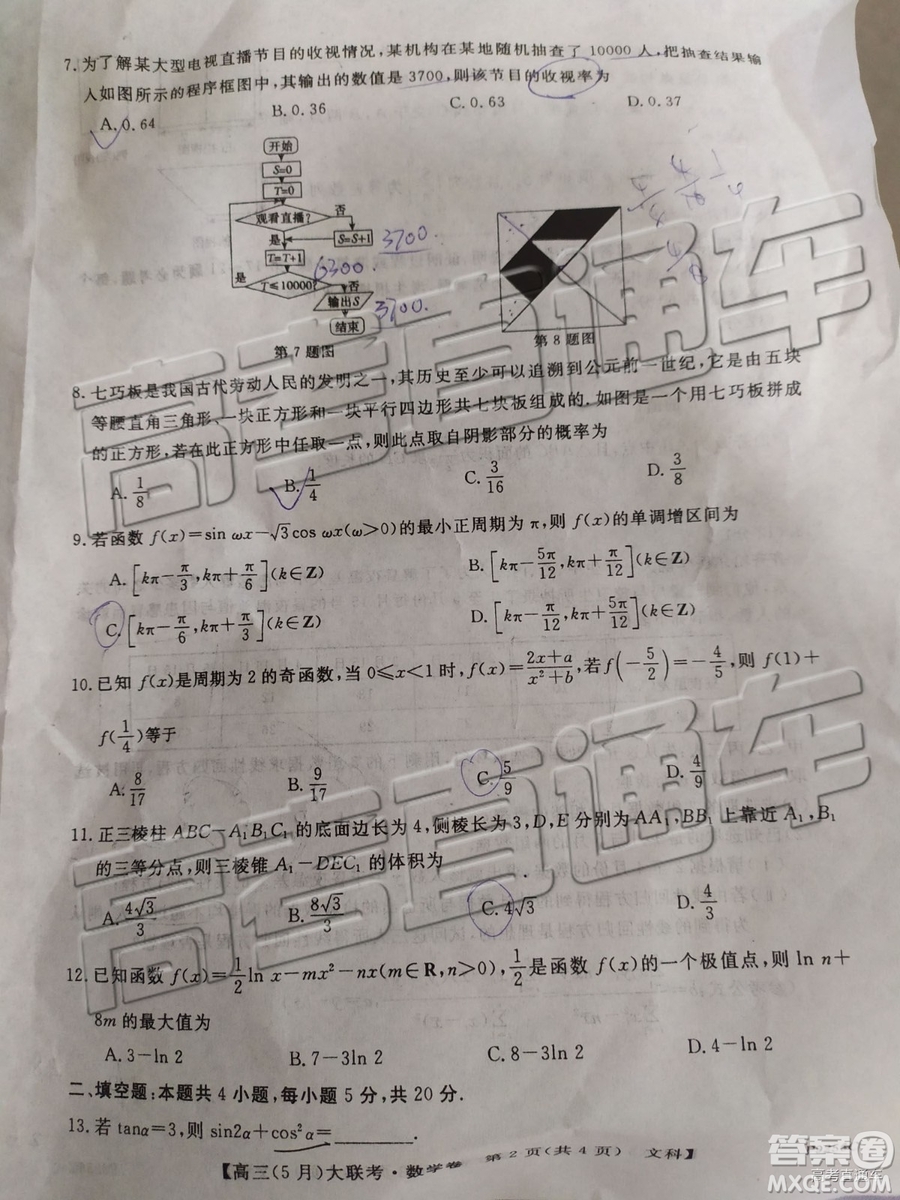 7. 为了解某大型电视直播节目的收视情况，某机构在某地随机抽查了 10000 人，把抽查结果输
入如图所示的程序框图中，其输出的数值是 3700，则该节目的收视率为
A. 0.64 B. 0.36 C. 0.63 D. 0.37
开始
S=0
T=0
观看直播?
否
是
S=S+1
3700.
T=T+1
6300.
是
T≤10000?
否
输出S
3700.
结束
第 7 题图
第 8 题图
8. 七巧板是我国古代劳动人民的发明之一，其历史至少可以追溯到公元前一世纪，它是由五块
等腰直角三角形、一块正方形和一块平行四边形共七块板组成的. 如图是一个用七巧板拼成
的正方形，若在此正方形中任取一点，则此点取自阴影部分的概率为
A. 1/8 B. 1/4 C. 3/16 D. 3/8
9. 若函数 f(x)=sin ωx-√3cos ωx(ω>0)的最小正周期为 π，则 f(x)的单调增区间为
A. [kπ-π/3, kπ+π/6](k∈Z) B. [kπ-5π/12, kπ+π/12](k∈Z)
C. [kπ-π/6, kπ+π/3](k∈Z) D. [kπ-π/12, kπ+5π/12](k∈Z)
10. 已知 f(x)是周期为 2 的奇函数，当 0≤x<1 时，f(x)=(2x+a)/(x²+b)，若 f(-5/2)=-4/5，则 f(1)+
f(1/4)等于
A. 8/17 B. 9/17 C. 5/9 D. 4/9
11. 正三棱柱 ABC-A₁B₁C₁ 的底面边长为 4，侧棱长为 3，D，E 分别为 AA₁，BB₁ 上靠近 A₁，B₁
的三等分点，则三棱锥 A₁-DEC₁ 的体积为
A. 4√3/3 B. 8√3/3 C. 4√3 D. 4/3
12. 已知函数 f(x)=1/2 ln x-mx²-nx(m∈R，n>0)，1/2是函数 f(x)的一个极值点，则 ln n+
8m 的最大值为
A. 3-ln 2 B. 7-3ln 2 C. 8-3ln 2 D. 4-ln 2
二、填空题：本题共 4 小题，每小题 5 分，共 20 分.
13. 若 tanα=3，则 sin2α+cos²α=________.
【高三(5 月)大联考·数学卷 第 2 页(共 4 页) 文科】
高考直通车
高考直通车
答案圈
MXQE.COM
高考直通车